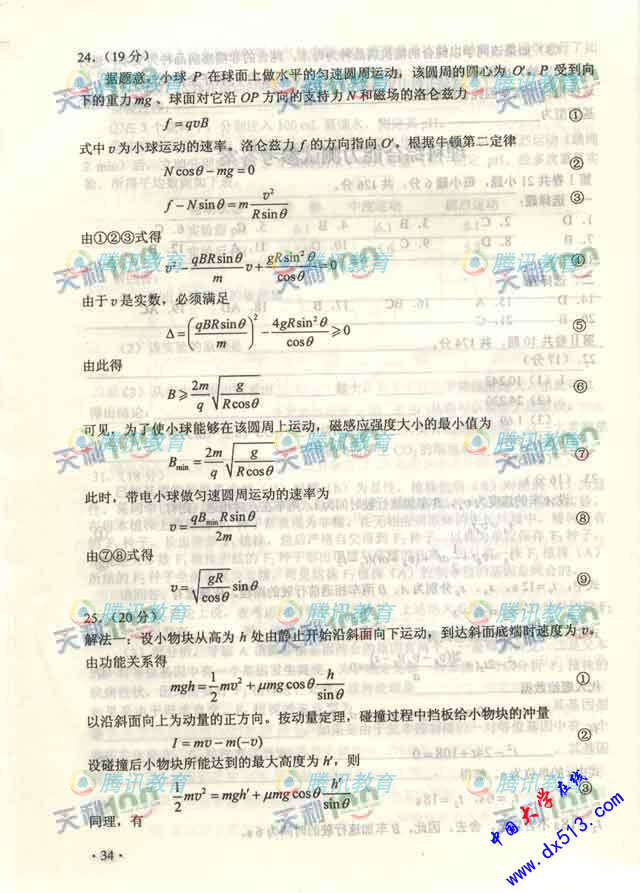 24．(19 分)
据题意，小球 P 在球面上做水平的匀速圆周运动，该圆周的圆心为 O′。P 受到向
下的重力 mg 、球面对它沿 OP 方向的支持力 N 和磁场的洛仑兹力
f = qvB ①
式中 v 为小球运动的速率。洛仑兹力 f 的方向指向 O′。根据牛顿第二定律
N cosθ − mg = 0 ②
f − N sinθ = m v²/(R sinθ) ③
由①②③式得
v² − (qBR sinθ/m) v + gR sin²θ/cosθ = 0 ④
由于 v 是实数，必须满足
Δ = (qBR sinθ/m)² − 4gR sin²θ/cosθ ⩾ 0 ⑤
由此得
B ⩾ (2m/q) √(g/(R cosθ)) ⑥
可见，为了使小球能够在该圆周上运动，磁感应强度大小的最小值为
Bmin = (2m/q) √(g/(R cosθ)) ⑦
此时，带电小球做匀速圆周运动的速率为
v = qBminR sinθ/2m ⑧
由⑦⑧式得
v = √(gR/cosθ) sinθ ⑨
25．(20 分)
解法一：设小物块从高为 h 处由静止开始沿斜面向下运动，到达斜面底端时速度为 v。
由功能关系得
mgh = ½mv² + μmg cosθ h/sinθ ①
以沿斜面向上为动量的正方向。按动量定理，碰撞过程中挡板给小物块的冲量
I = mv − m(−v) ②
设碰撞后小物块所能达到的最大高度为 h′，则
½mv² = mgh′ + μmg cosθ h′/sinθ ③
同理，有
· 34 ·
天利100
腾讯教育
中国大学在线
www.dx513.com